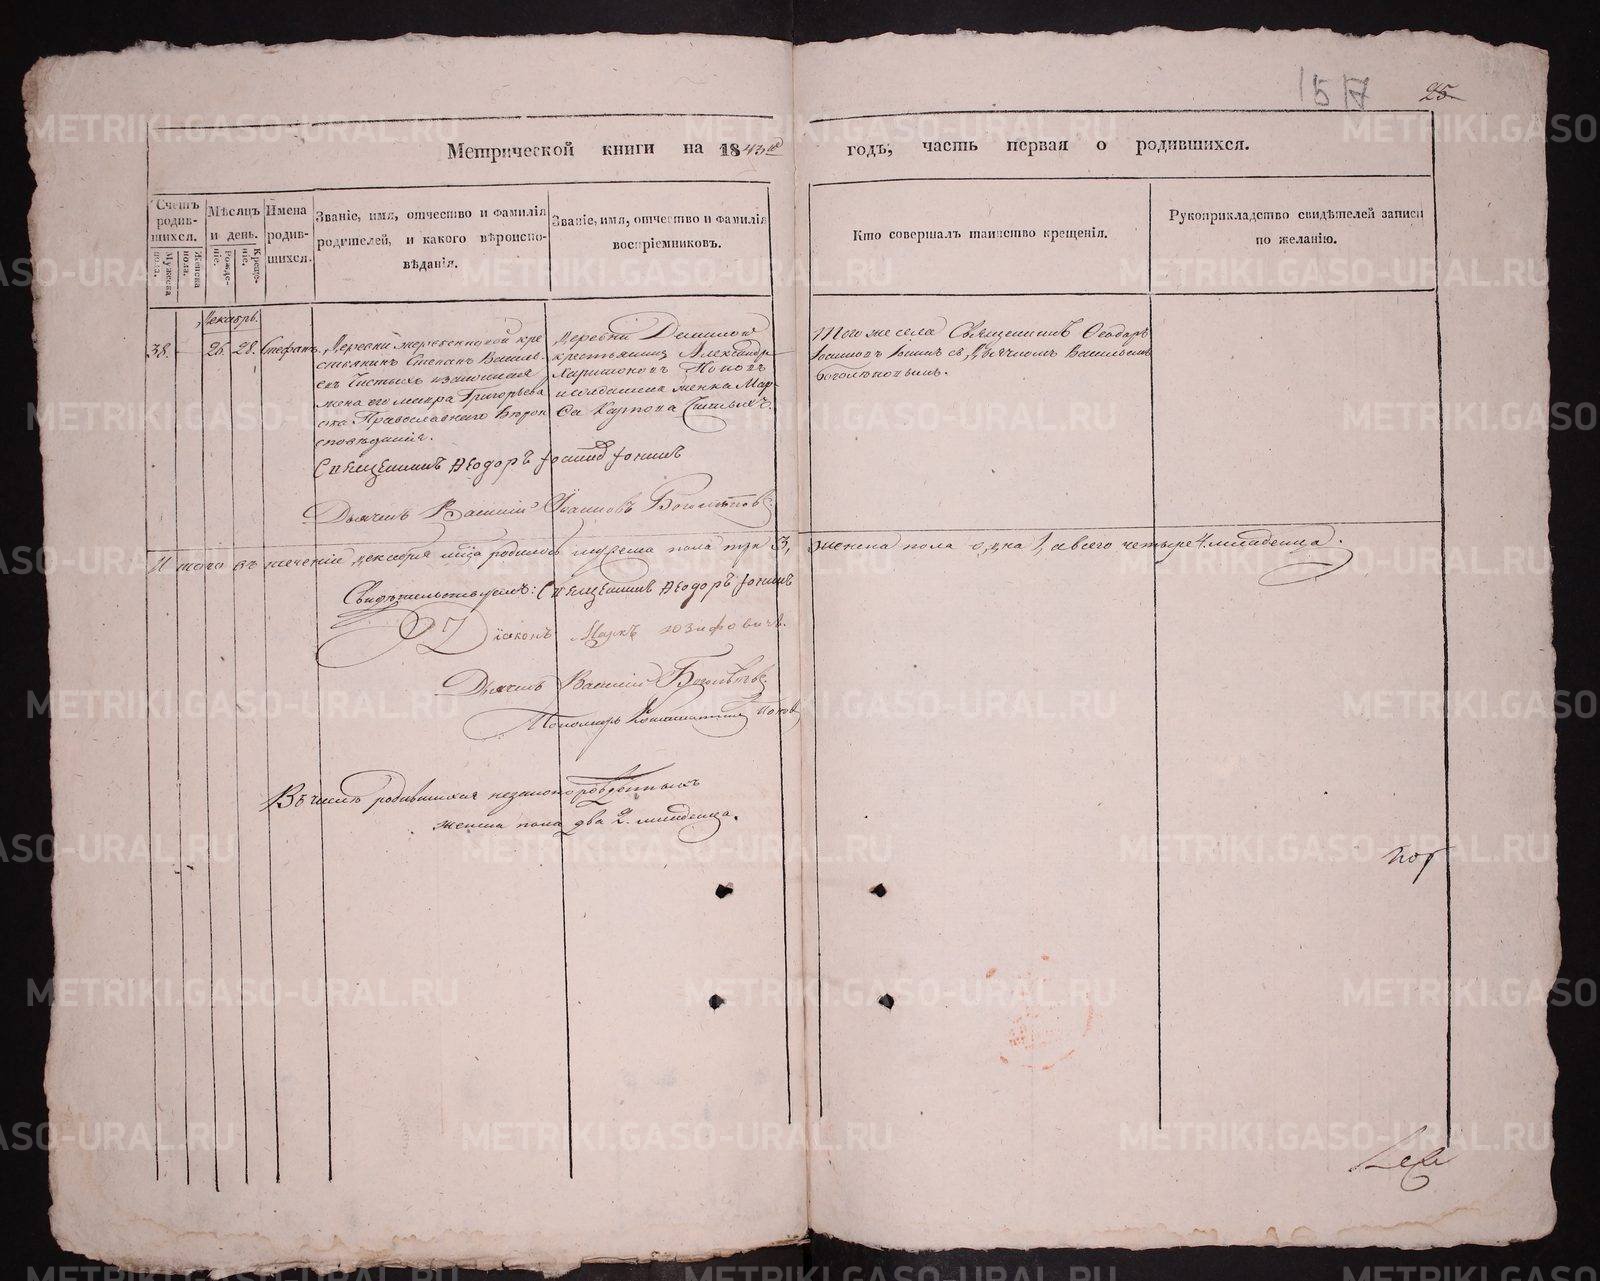 1517
25
Метрической книги на 1843 годъ, часть первая о родившихся.
Счетъ родившихся.
Мужеска пола.
Женска пола.
Мѣсяцъ и день.
Рожденіе.
Крещеніе.
Имена родившихся.
Званіе, имя, отчество и фамилія родителей, и какого вѣроисповѣданія.
Званіе, имя, отчество и фамилія воспріемниковъ.
Кто совершалъ таинство крещенія.
Рукоприкладство свидѣтелей записи по желанію.
Декабрь.
38. - 26. 28. Стефанъ.
Деревни кре
стьянинъ Степанъ Василь-
евъ Чистыхъ и законная
жена его Мавра Григорьева
оба Православнаго Вѣрои
сповѣданія.
Деревни
крестьянинъ Александръ
Харитоновъ Поповъ
и солдатская женка Мар-
Карпова Чистыхъ.
Того же села Священникъ Ѳеодоръ
Іоанновъ съ Дьячкомъ Васильемъ
Боголюповымъ.
Священникъ Ѳеодоръ
Дьячекъ Василій Іоанновъ
Итого въ теченіе декабря мѣсяца родилось мужеска пола три 3, женска пола одна 1, а всего четыре 4. младенца.
Свидѣтельствуемъ: Священникъ Ѳеодоръ
Діаконъ Маркъ Іозифовичъ.
Дьячекъ Василій
Пономарь Константинъ Поповъ
Въ числѣ родившихся незаконнорожденныхъ
женска пола два 2. младенца.
METRIKI.GASO-URAL.RU